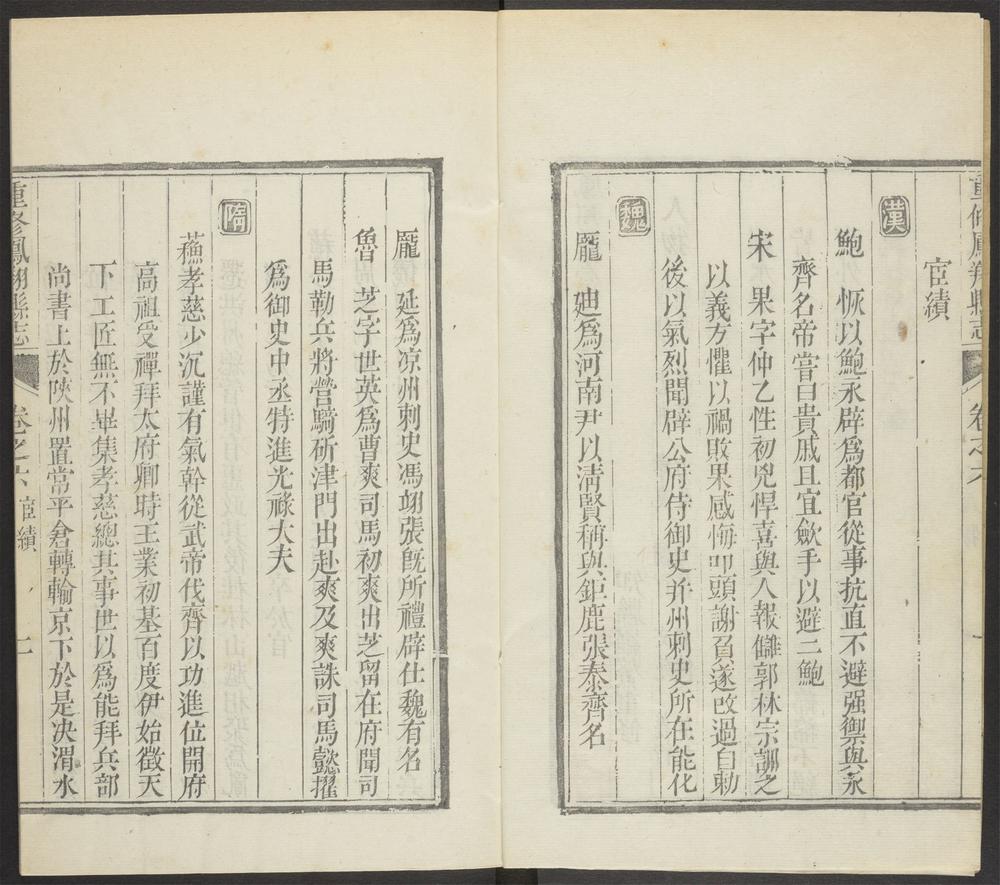 重修鳳翔縣志
卷之六
宦績
漢
鮑　恢以鮑永辟爲都官從事抗直不避强禦與永
齊名帝嘗曰貴戚且宜歛手以避二鮑
宋　果字仲乙性初兇悍喜與人報讎郭林宗訓之
以義方懼以禍敗果感悔叩頭謝咎遂改過自勅
後以氣烈聞辟公府侍御史并州刺史所在能化
魏
龎　廸爲河南尹以淸賢稱與鉅鹿張泰齊名
龎　延爲凉州刺史馮翊張旣所禮辟仕魏有名
魯　芝字世英爲曹爽司馬初爽出芝留在府聞司
馬勒兵將營騎斫津門出赴爽及爽誅司馬懿擢
爲御史中丞特進光祿大夫
隋
蘓孝慈少沉謹有氣幹從武帝伐齊以功進位開府
高祖受禪拜太府卿時王業初基百度伊始徵天
下工匠無不畢集孝慈總其事世以爲能拜兵部
尚書上於陝州置常平倉轉輸京下於是决渭水
重修鳳翔縣志
卷之六　宦績